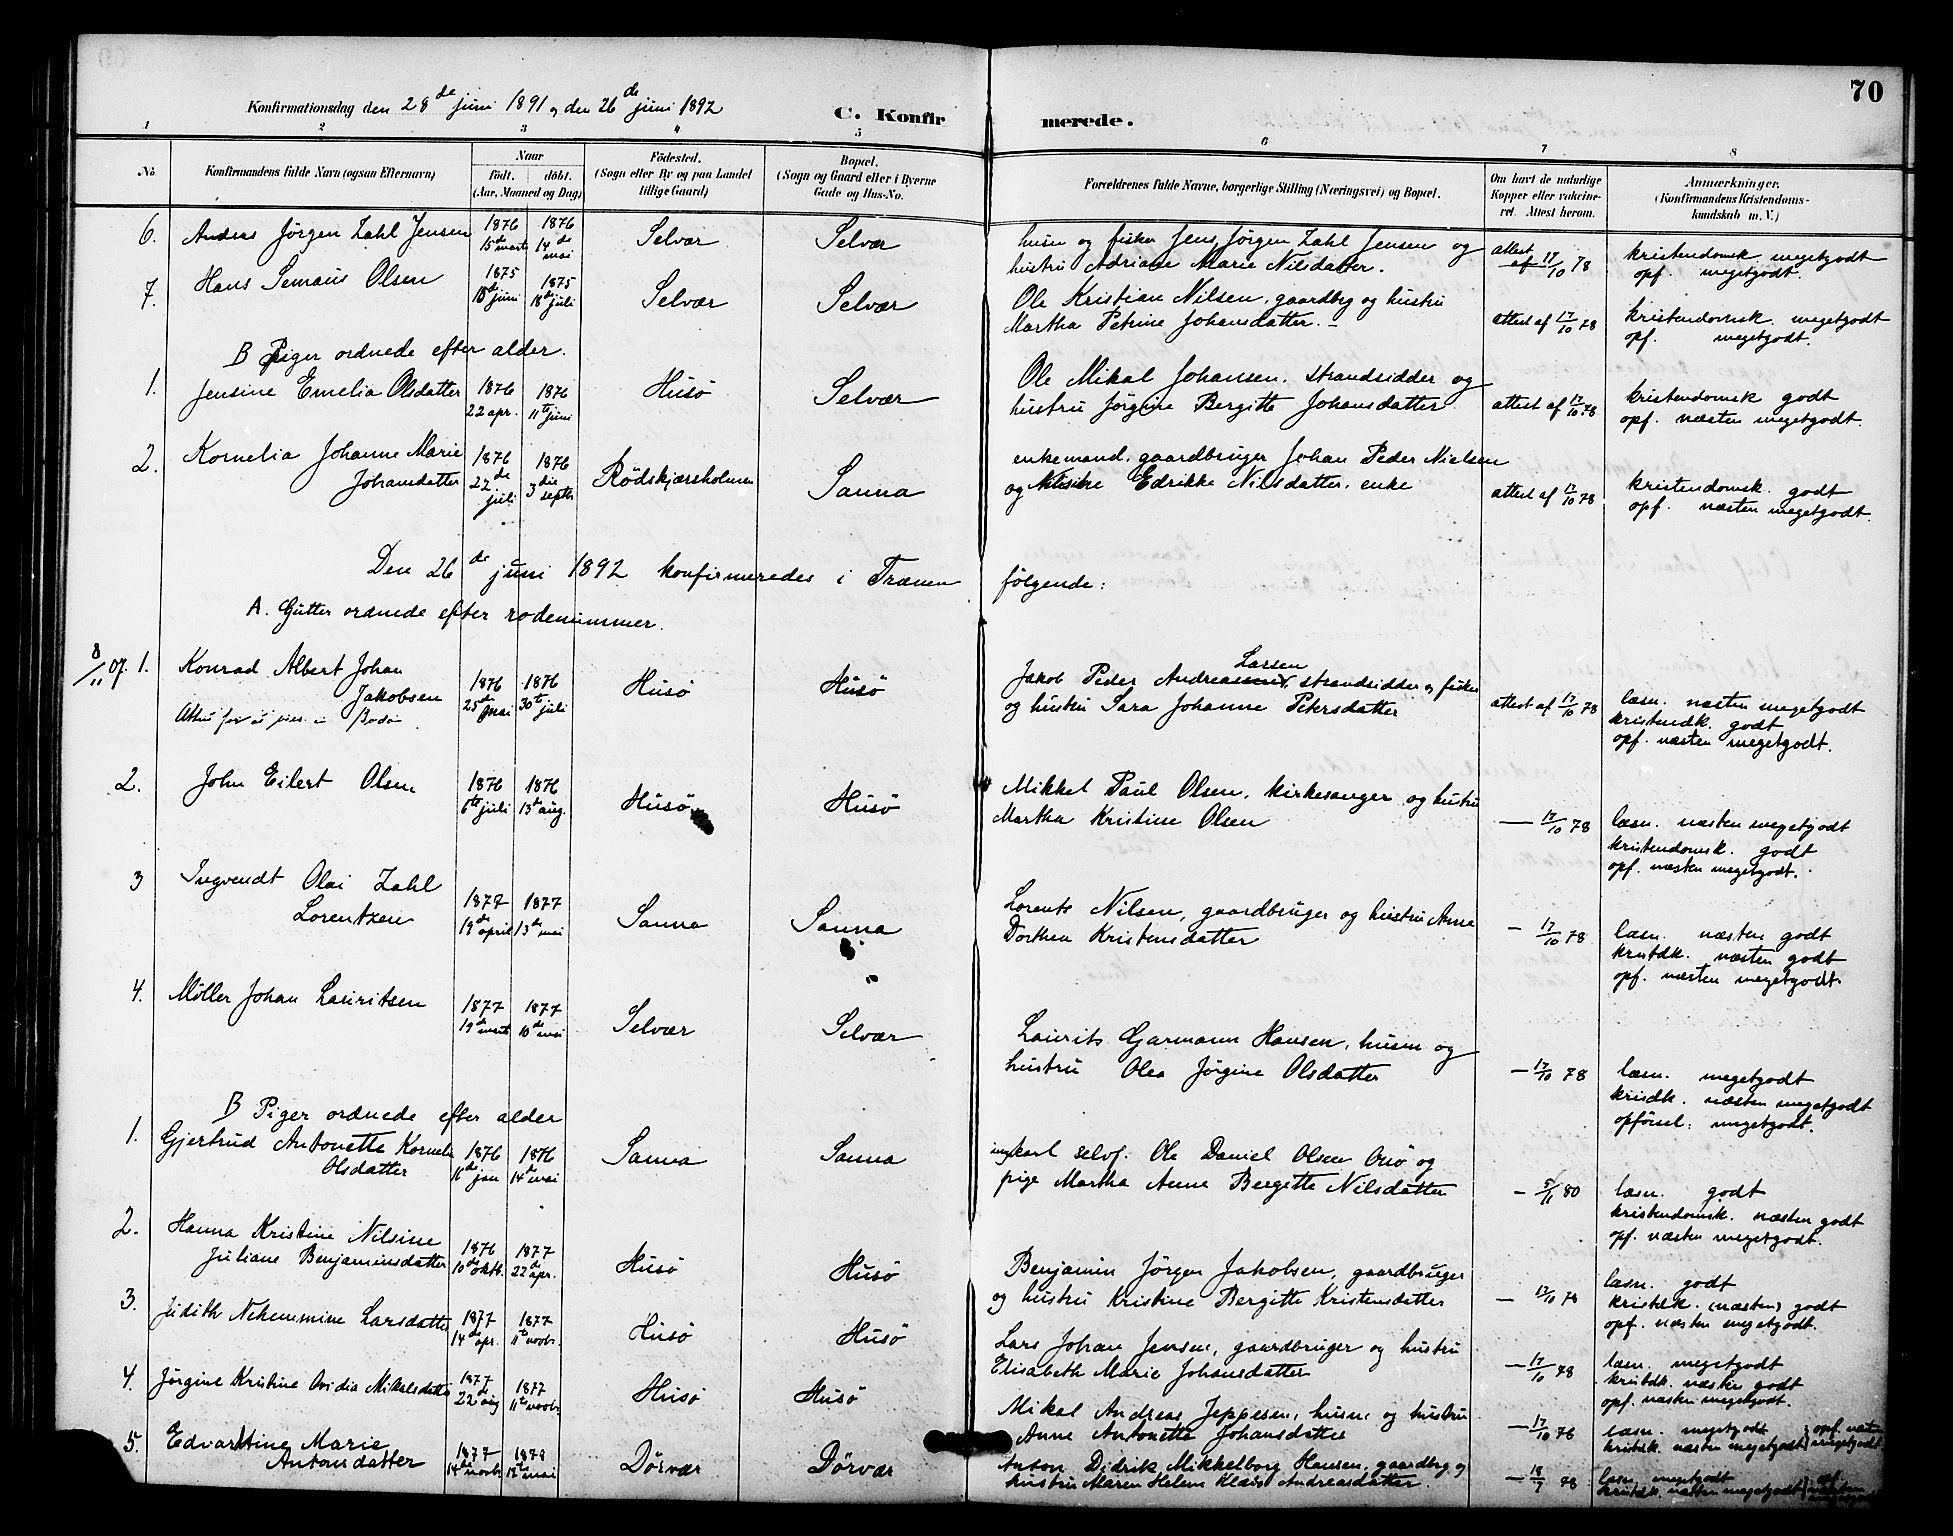 70
Konfirmationsdag den 28de juni 1891 og den 26de juni 1892
C. Konfirmerede.
1 2 3 4 5 6 7 8
No.
Konfirmandens fulde Navn (ogsaa Efternavn)
Naar
födt. döbt.
(Aar, Maaned og Dag)
Födested.
(Sogn eller By og paa Landet
tillige Gaard)
Bopæl.
(Sogn og Gaard eller i Byerne
Gade og Hus-No.
Forældrenes fulde Navne, borgerlige Stilling (Næringsvei) og Bopæl.
Om havt de naturlige
Kopper eller vakcine-
ret. Attest herom.
Anmærkninger.
(Konfirmandens Kristendoms-
kundskab m. V.)
6. Andreas Jörgen Zahl Jensen 1876 15de marts 1876 14de mai Selvær Selvær
husm og fisker Jens Jörgen Zahl Jensen og
hustru Adriane Marie Nilsdatter.
attest af 17/10 78
kristendomsk. megetgodt
opf. megetgodt.
7. Hans Semaus Olsen 1875 18de juni 1875 18de juli Selvær Selvær
Ole Kristian Nilsen, gaardbg og hustru
Martha Petrine Johansdatter. –
attest af 17/10 78
kristendomsk. megetgodt
opf. megetgodt.
B Piger ordnede efter alder.
1. Jensine Emelia Olsdatter 1876 22 apr. 1876 11te juni Husö Selvær
Ole Mikal Johansen, strandsidder og
hustru Jörgine Bergitte Johansdatter
attest af 17/10 78
kristendomsk godt
opf. næsten megetgodt.
2. Kornelia Johanne Marie
Johansdatter 1876 22de juli 1876 3die septbr Rödskjærsholmen Sanna
enkemand, gaardbruger Johan Peder Nielsen
og Edrikke Nilsdatter, enke
attest af 17/10 78
kristendomsk. godt
opf. næsten megetgodt.
Den 26de juni 1892 konfirmeredes i Trænen følgende:
A. Gutter ordnede efter rodenummer.
8/11 07. 1. Konrad Albert Johan
Jakobsen 1876 25de mai 1876 30te juli Husö Husö
Bodö
Jakob Peder Andreassen Larsen, strandsidder og fisker
og hustru Sara Johanne Petersdatter
attest af 17/10 78
læsn. næsten megetgodt
kristendk. godt
opf. næsten megetgodt.
2. John Eilert Olsen 1876 6te juli 1876 13de aug. Husö Husö
Mikkel Paul Olsen, kirkesanger og hustru
Martha Kristine Olsen
— 17/10 78
læsn. næsten megetgodt
kristendomsk. godt
opf. næsten megetgodt.
3 Ingvendt Olai Zahl
Lorentzen 1877 19de april 1877 13de mai Sanna Sanna
Lorents Nilsen, gaardbruger og hustru Anne
Dorthea Kristensdatter
– 17/10 78
læsn. næsten godt
kristdk. næsten godt
opf. næsten megetgodt.
4. Møller Johan Lauritsen 1877 19de marts 1877 10de mai Selvær Selvær
Laurits Garmann Hansen, husm og
hustru Olea Jörgine Olsdatter
– 17/10 78
læsn. megetgodt
kristdk. næsten megetgodt
opförsel: megetgodt.
B Piger ordnede efter alder
1. Gjertrud Antonette Kornelia
Olsdatter 1876 16de jan 1876 14de mai Sanna Sanna
ungkarl selvf. Ole Daniel Olsen Onö og
pige Martha Anne Bergitte Nilsdatter
– 5/11 80
læsn. godt
kristendomsk. næsten godt
opf. næsten megetgodt.
2. Hanna Kristine Nilsine
Juliane Benjaminsdatter 1876 10de oktb. 1877 22de apr. Husö Husö
Benjamin Jörgen Jakobsen, gaardbruger
og hustru Kristine Bergitte Kristensdatter
— 17/10 78
læsn. godt
kristdk. (næsten) godt
opf. næsten megetgodt.
3. Judith Nekommine Larsdatter 1877 14de apr. 1877 11te novbr. Husö Husö
Lars Johan Jensen, gaardbruger og hustru
Elisabeth Marie Johansdatter
— 17/10 78
læsn. megetgodt
kristdk. næsten godt
opf. næsten megetgodt.
4. Jörgine Kristine Ovidia Mikalsdatter 1877 22de aug 1877 11te novbr. Husö Husö
Mikal Andreas Jeppesen, husm, og hustru
Anne Antonette Johansdatter
— 17/10 78
læsn. megetgodt
kristdk. næsten megetgodt
opf. næsten megetgodt
5. Edvardtine Marie
Antonsdatter 1877 14de novbr 1878 12te mai Dörvær Dörvær
Anton Didrik Mikkelborg Hansen, gaardbg og
hustru Maren Helene Klæbo Andreasdatter.
— 18/7 78
læsn. megetgodt
kristdk. næsten megetgodt
opf. næsten megetgodt